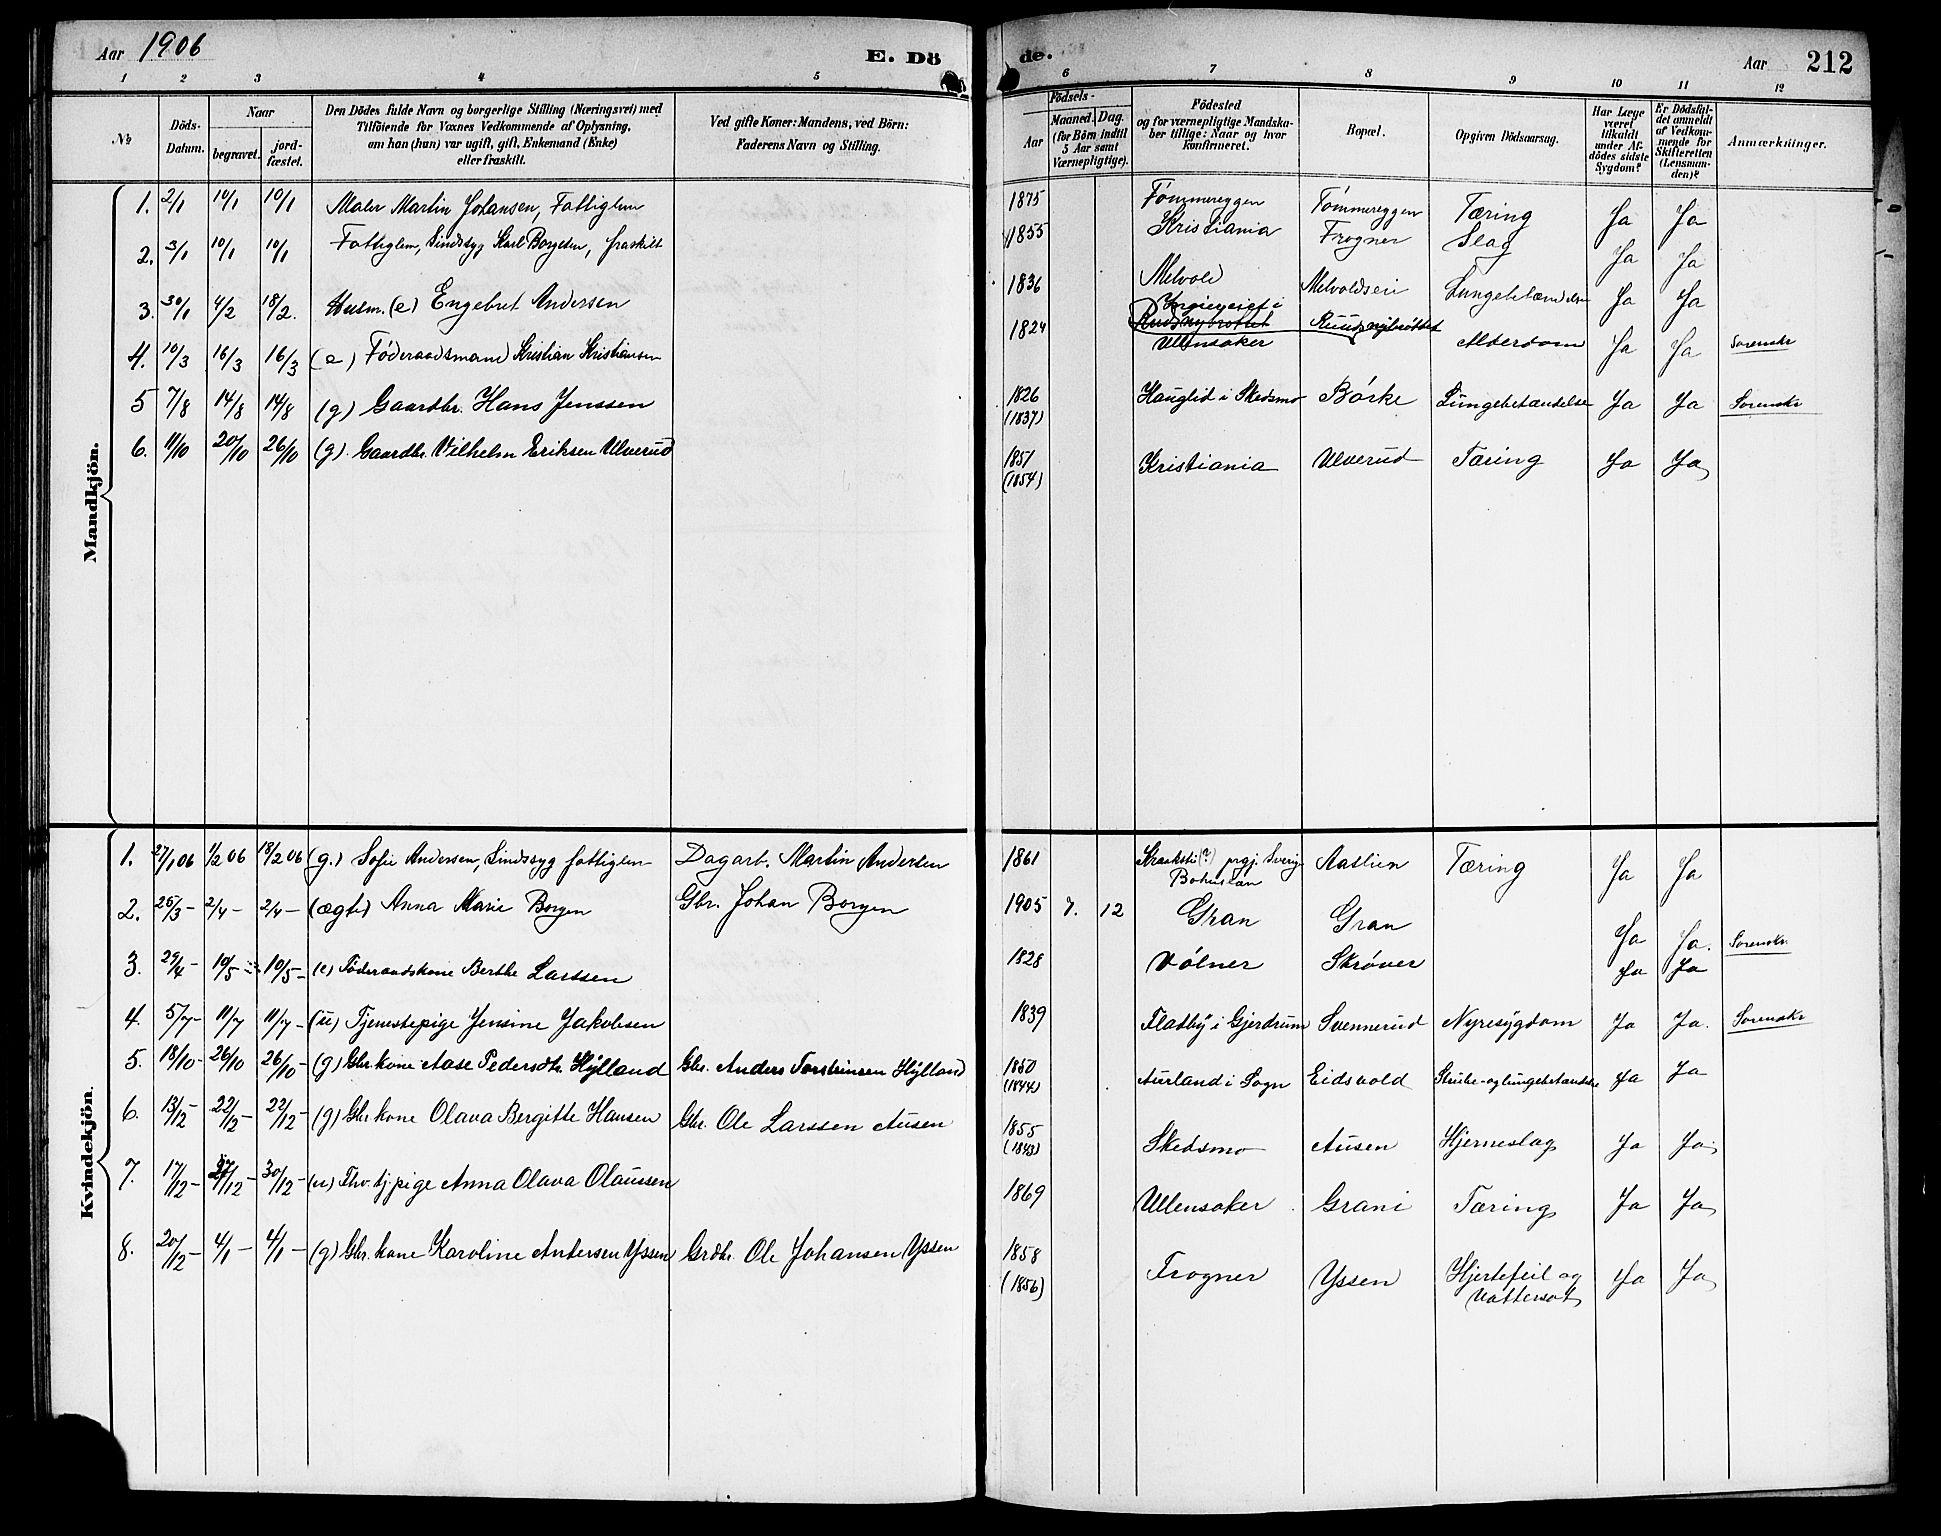 Aar 1906
E. Dö
de.
Aar
212
1 2 3 4 5
6 7 8 9 10 11 12
№
Döds-
Datum.
Naar
begravet.
jord-
fæstet.
Den Dödes fulde Navn og borgerlige Stilling (Næringsvei) med
Tilföiende for Voxnes Vedkommende af Oplysning,
om han (hun) var ugift, gift, Enkemand (Enke)
eller fraskilt.
Ved gifte Koner: Mandens, ved Börn:
Faderens Navn og Stilling.
Födsels-
Aar
Maaned. Dag.
(for Börn indtil
5 Aar samt
Værnepligtige).
Födested
og for værnepligtige Mandska-
ber tillige: Naar og hvor
konfirmeret.
Bopæl.
Opgiven Dödsaarsag.
Har Læge
været
tilkaldt
under Af-
dödes sidste
Sygdom?
Er Dödsfal-
det anmeldt
af Vedkom-
mende for
Skifteretten
(Lensman-
den)?
Anmærkninger.
Mandkjön.
1. 2/1 10/1 10/1 Maler Martin Johansen, Fattiglem 1875 Tømmereggen Tømmereggen Tæring Ja Ja
2. 3/1 10/1 10/1 Fattiglem, Sindssyg Karl Borgesen, fraskilt 1855 Kristiania Frogner Slag Ja Ja
3. 30/1 4/2 18/2. Husm. (e) Engebret Andersen 1836 Melvold Melvoldseie Lungebetændelse Ja Ja
4. 10/3 16/3 16/3 (e) Føderaadsmand Kristian Kristiansen 1824 i
Rudsnybrottet
Ullensaker Ruudsnybrøttet Alderdom Ja Ja Sorenskr
5 7/8 14/8 14/8 (g) Gaardbr. Hans Jenssen 1826
(1837) Hauglid i Skedsmo Børke Lungebetændelse Ja Ja Sorenskr
6. 11/10 20/10 26/10 (g). Gaardbr. Vilhelm Eriksen Ulverud 1851
(1854) Kristiania Ulverud Tæring Ja Ja
Kvindekjön.
1. 27/1 06 1/2 06 18/2 06 (g.) Sofie Andersen, Sindssyg fattiglem Dagarb. Martin Andersen 1861 (?) prgj. Sverige
Bohuslän Aaslien Tæring Ja Ja
2. 25/3 - 2/4 - 2/4 - (ægte) Anna Marie Borgen Gbr. Johan Borgen 1905 7. 12 Gran Gran Ja Ja.
3. 29/4 - 10/5 - 10/5 - (e) Føderaadskone Berthe Larssen 1828 Vølner Skrøver Ja Ja Sorenskr.
4. 5/7 - 11/7 11/7 - (u) Tjenestepige Jensine Jakobsen 1839 Fladby i Gjerdrum Svennerud Nyresygdom Ja Ja. Sorenskr
5. 18/10 - 26/10 26/10 - (g) Gbr. kone Aase Pedersdtr. Hylland Gbr. Anders Torsteinsen Hylland 1850
(1844) Aurland i Sogn Eidsvold Strube- og lungebetændelse Ja Ja
6. 13/12 22/12 - 22/12 - (g) Gbr. kone Olava Bergitte Hansen Gbr. Ole Larssen Ausen 1855
(1843) Skedsmo Ausen Hjerneslag Ja Ja
7. 17/12 - 27/12 - 30/12 - (u) Fhv. tj. pige Anna Olava Olaussen 1869 Ullensaker Grani Tæring Ja Ja
8. 20/12 - 4/1 - 4/1 - (g) Gbr. kone Karoline Andersen Yssen Grdbr. Ole Johansen Yssen 1858
(1856) Frogner Yssen Hjertefeil og
Vattersot Ja Ja